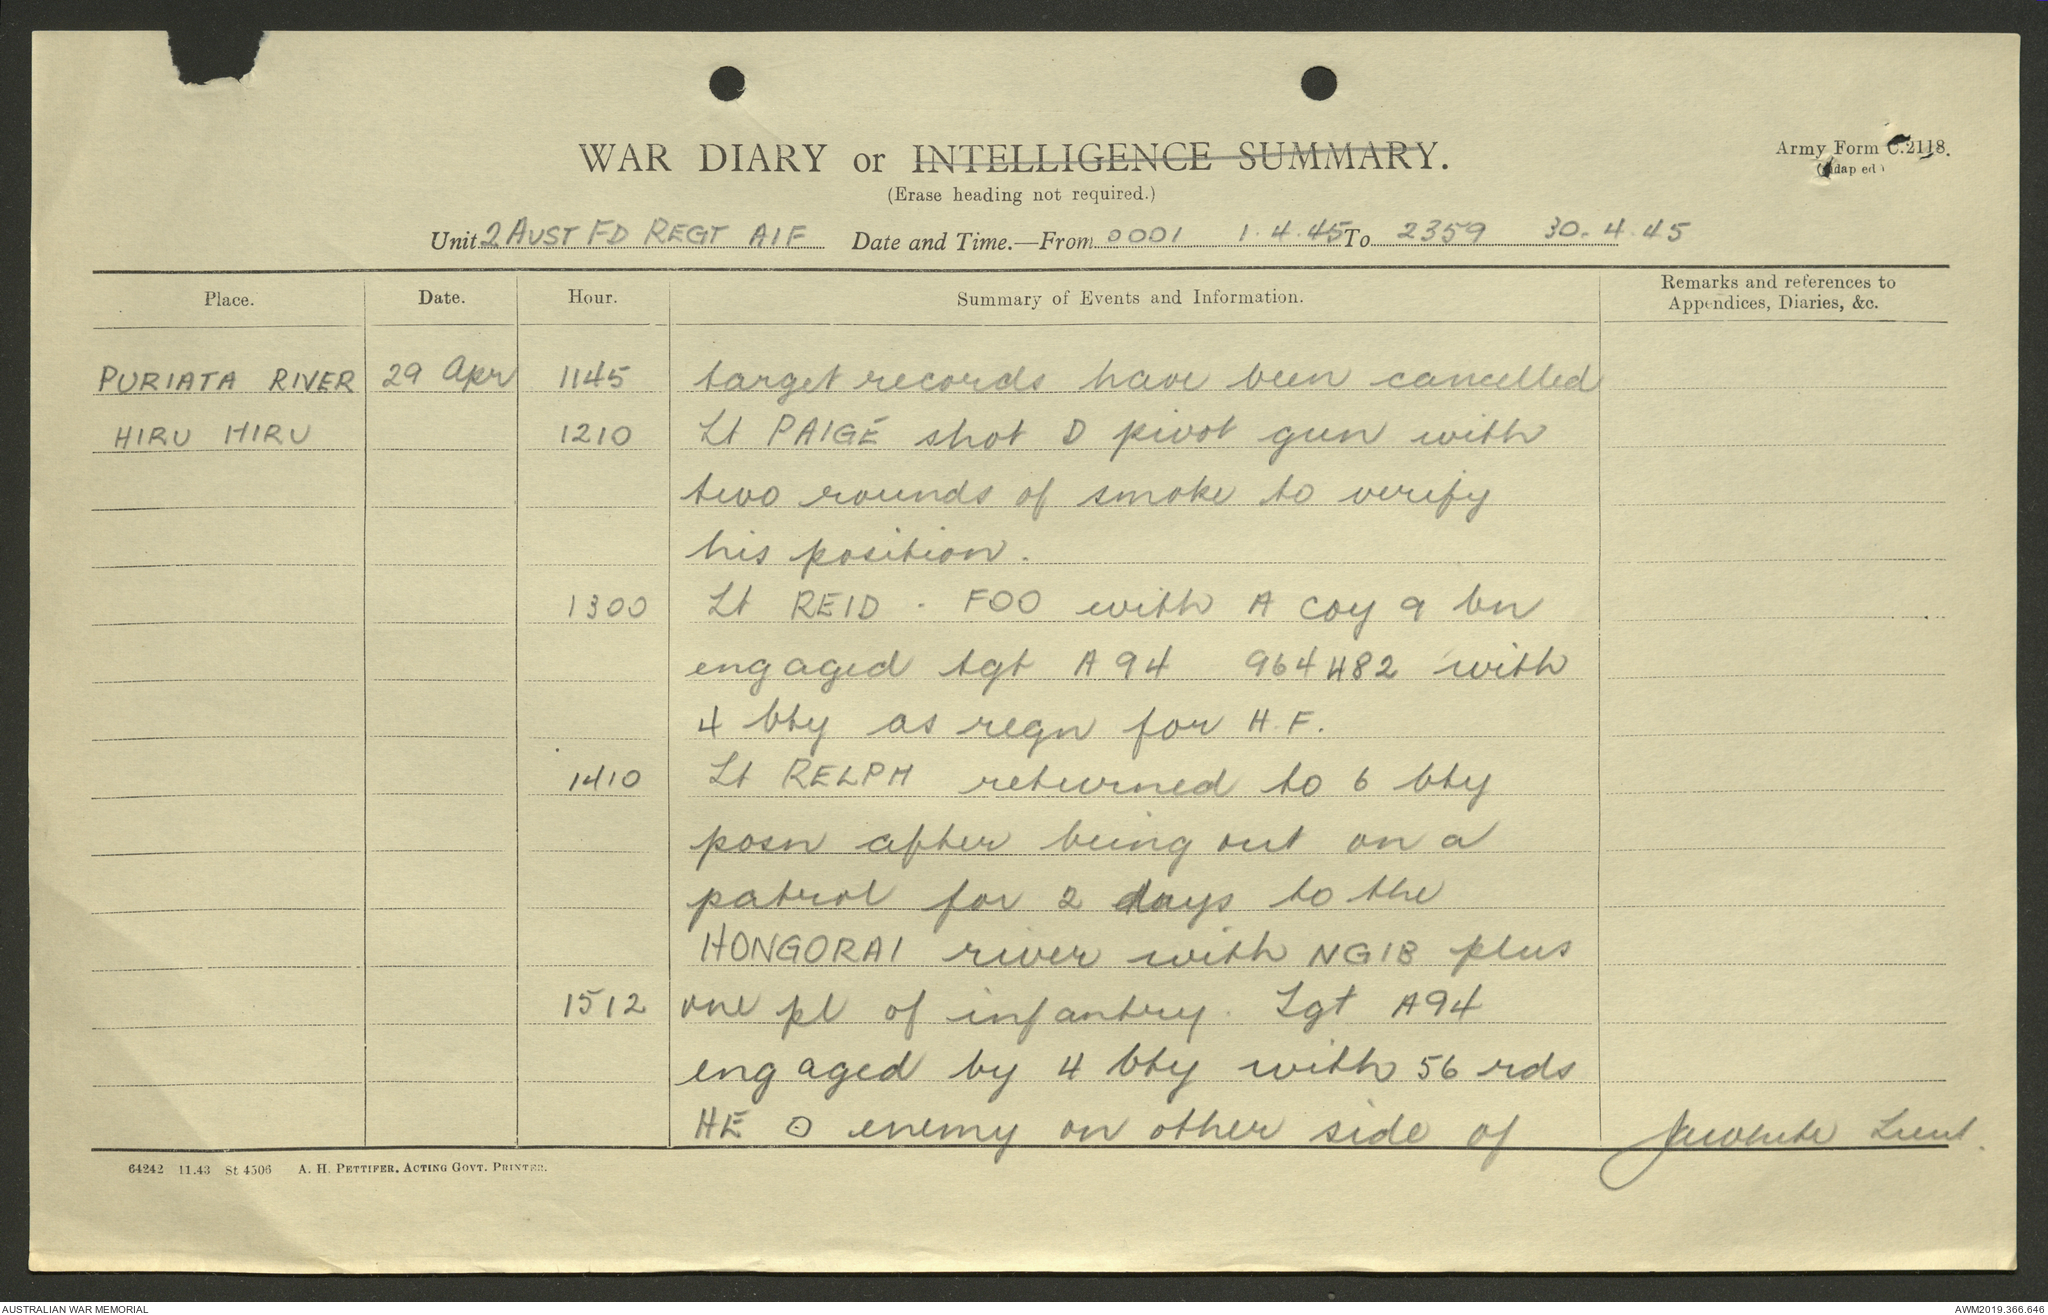 WAR DIARY or INTELLIGENCE SUMMARY.
(Erase heading not required.)
Army Form C.2118.
(Adapted)
Unit 2 AUST FD REGT AIF Date and Time.—From 0001 1.4.45 To 2359 30.4.45
Place. Date. Hour. Summary of Events and Information. Remarks and references to Appendices, Diaries, &c.
PURIATA RIVER 29 Apr 1145 target records have been cancelled
HIRU HIRU 1210 Lt PAIGE shot D pivot gun with
two rounds of smoke to verify
his position.
1300 Lt REID - FOO with A coy 9 bn
engaged tgt A94 964482 with
4 bty as regn for H.F.
1410 Lt RELPH returned to 6 bty
posn after being out on a
patrol for 2 days to the
HONGORAI river with NGIB plus
1512 one pl of infantry. Tgt A94
engaged by 4 bty with 56 rds
HE enemy on other side of
Lieut.
64242 11.43 St 4506 A. H. PETTIFER, ACTING GOVT. PRINTER.
AUSTRALIAN WAR MEMORIAL
AWM2019.366.646